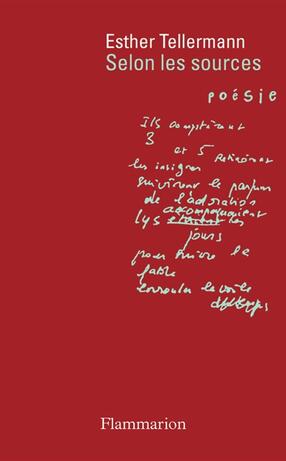 Esther Tellermann
Selon les sources
poésie
Ils comptèrent
3
et 5 Retinrent
les insignes
suivirent le parfum
de l'adoration
accompagnaient
lys les
jours
pour suivre la
fable
le voile
Flammarion